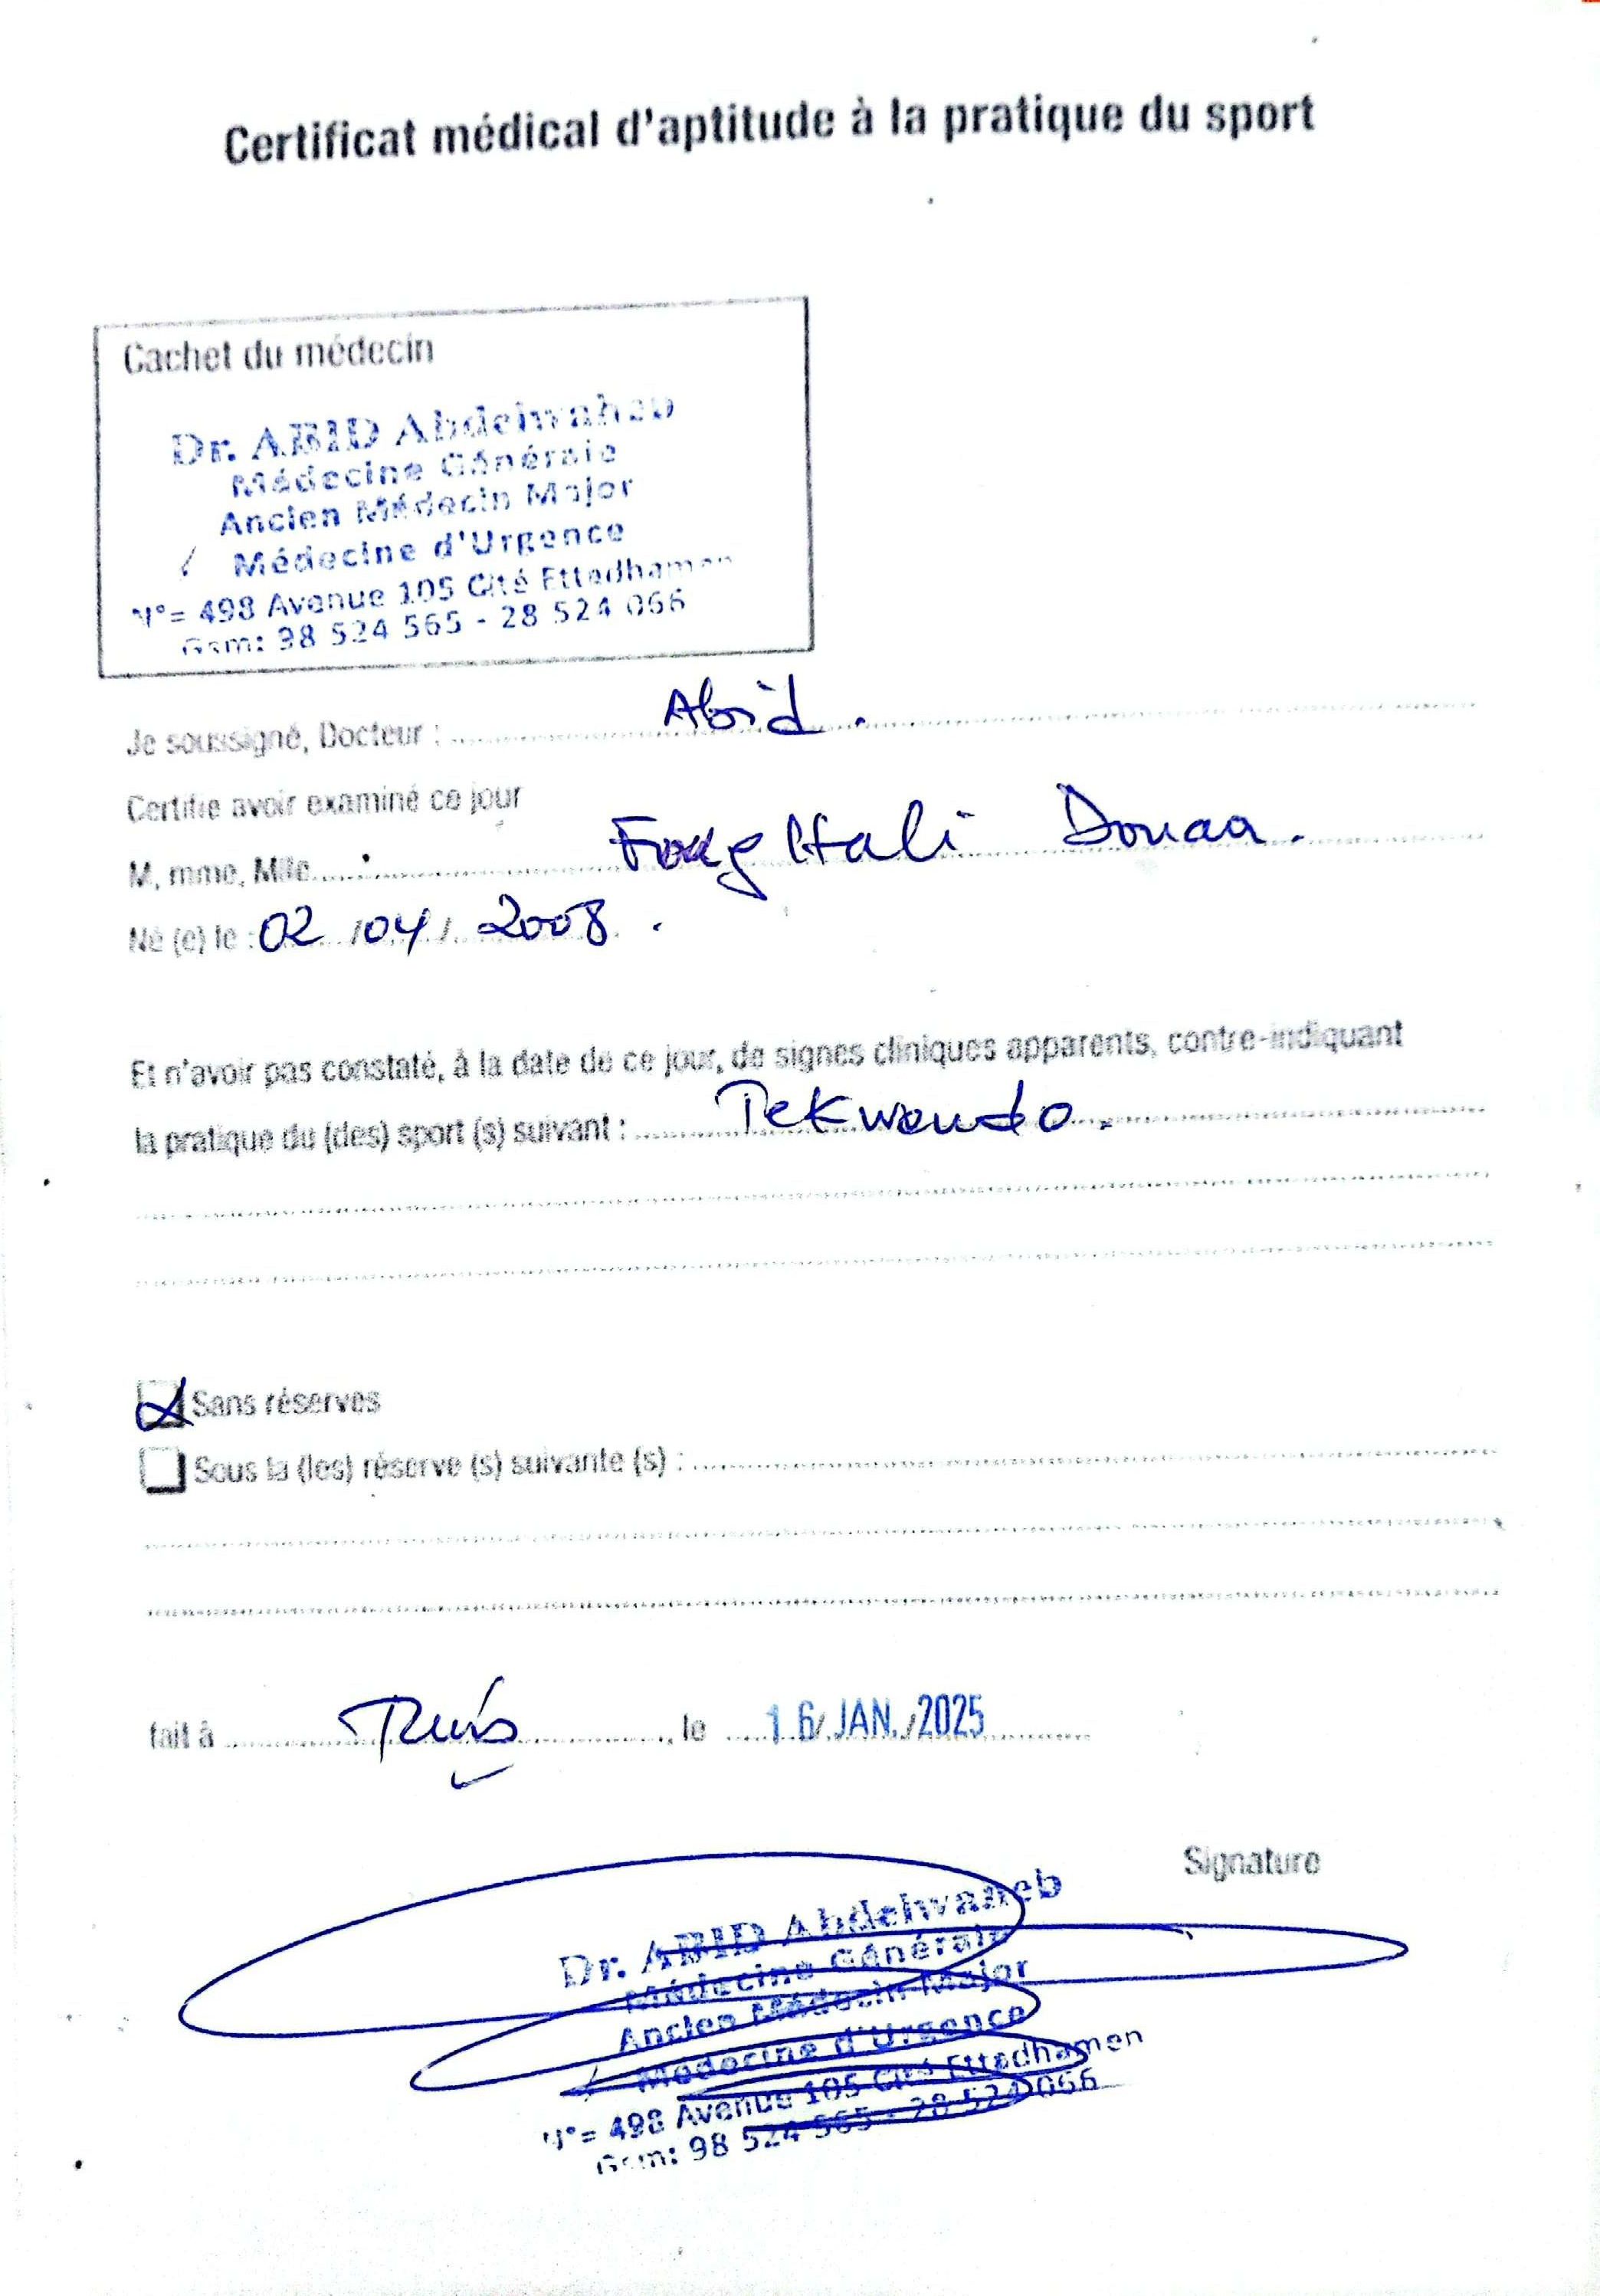 Certificat médical d'aptitude à la pratique du sport
Cachet du médecin
Dr. ABID Abdelwaheb
Médecine Générale
Ancien Médecin Major
Médecine d'Urgence
N°= 498 Avenue 105 Cité Ettadhamen
Gsm: 98 524 565 - 28 524 066
Je soussigné, Docteur : Abid.
Certifie avoir examiné ce jour
M, mme, Mlle Douaa.
Né (e) le : 02/04/2008.
Et n'avoir pas constaté, à la date de ce jour, de signes cliniques apparents, contre-indiquant
la pratique du (des) sport (s) suivant : Tekwendo.
Sans réserves
Sous la (les) réserve (s) suivante (s) :
fait à Tunis, le 16/JAN./2025
Signature
Dr. ABID Abdelwaheb
Médecine Générale
Ancien Médecin Major
Médecine d'Urgence
N°= 498 Avenue 105 Cité Ettadhamen
Gsm: 98 524 565 - 28 524 066